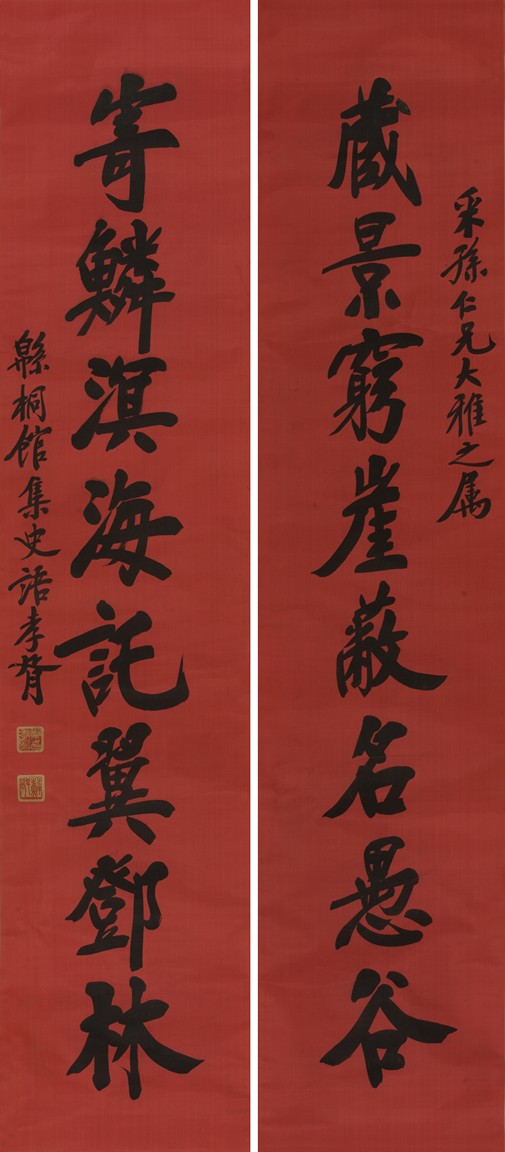 采孫仁兄大雅之属
藏景窮崖蔽名愚谷
寄鱗溟海託翼鄧林
緜桐館集史語孝胥